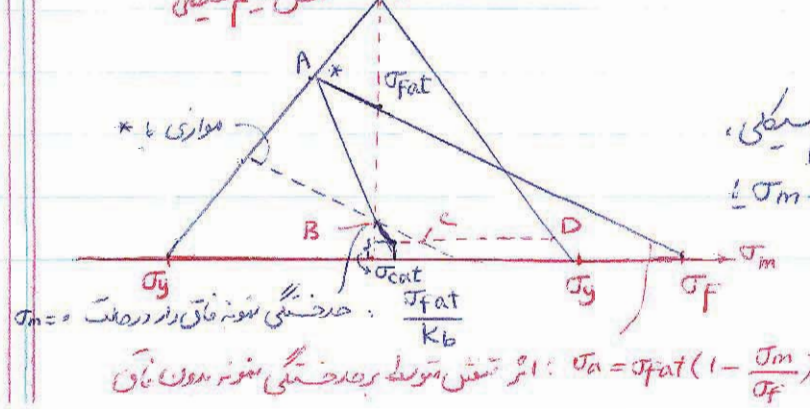 A *
σfat
موازی با *
سیکلی،
σm
B
C
D
σcat
σy
σy
σf
σm
σm=0 حدخستگی نمونه فاق دار در حالت : σfat/Kb
اثر تنش متوسط بر حدخستگی نمونه بدون فاق : σa = σfat(1 - σm/σf)